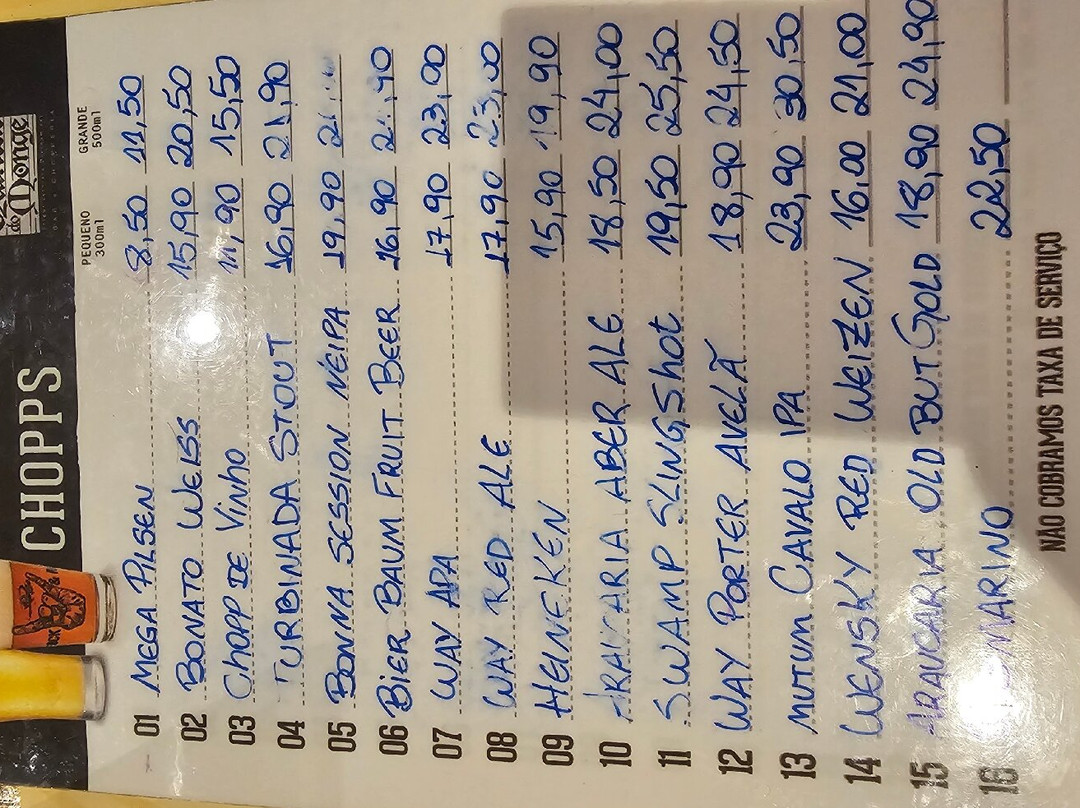 do Monge
CHOPPS
PEQUENO 300ml GRANDE 500ml
01 MEGA PILSEN 8,50 11,50
02 BONATO WEISS 15,90 20,50
03 CHOPP DE VINHO 11,90 15,50
04 TURBINADA STOUT 16,90 21,90
05 BONNA SESSION NEIPA 19,90
06 BIER BAUM FRUIT BEER 16,90
07 WAY APA 17,90 23,90
08 WAY RED ALE 17,90
09 HEINEKEN 15,90 19,90
10 ARAUCARIA ABER ALE 18,50 24,00
11 SWAMP SLINGShot 19,50 25,50
12 WAY PORTER AVELÃ 18,90 24,50
13 MUTUM CAVALO IPA 23,90 30,50
14 WENSKY RED WEIZEN 16,00 21,00
15 ARAUCARIA OLD BUT GOLD 18,90 24,90
16 22,50
NÃO COBRAMOS TAXA DE SERVIÇO